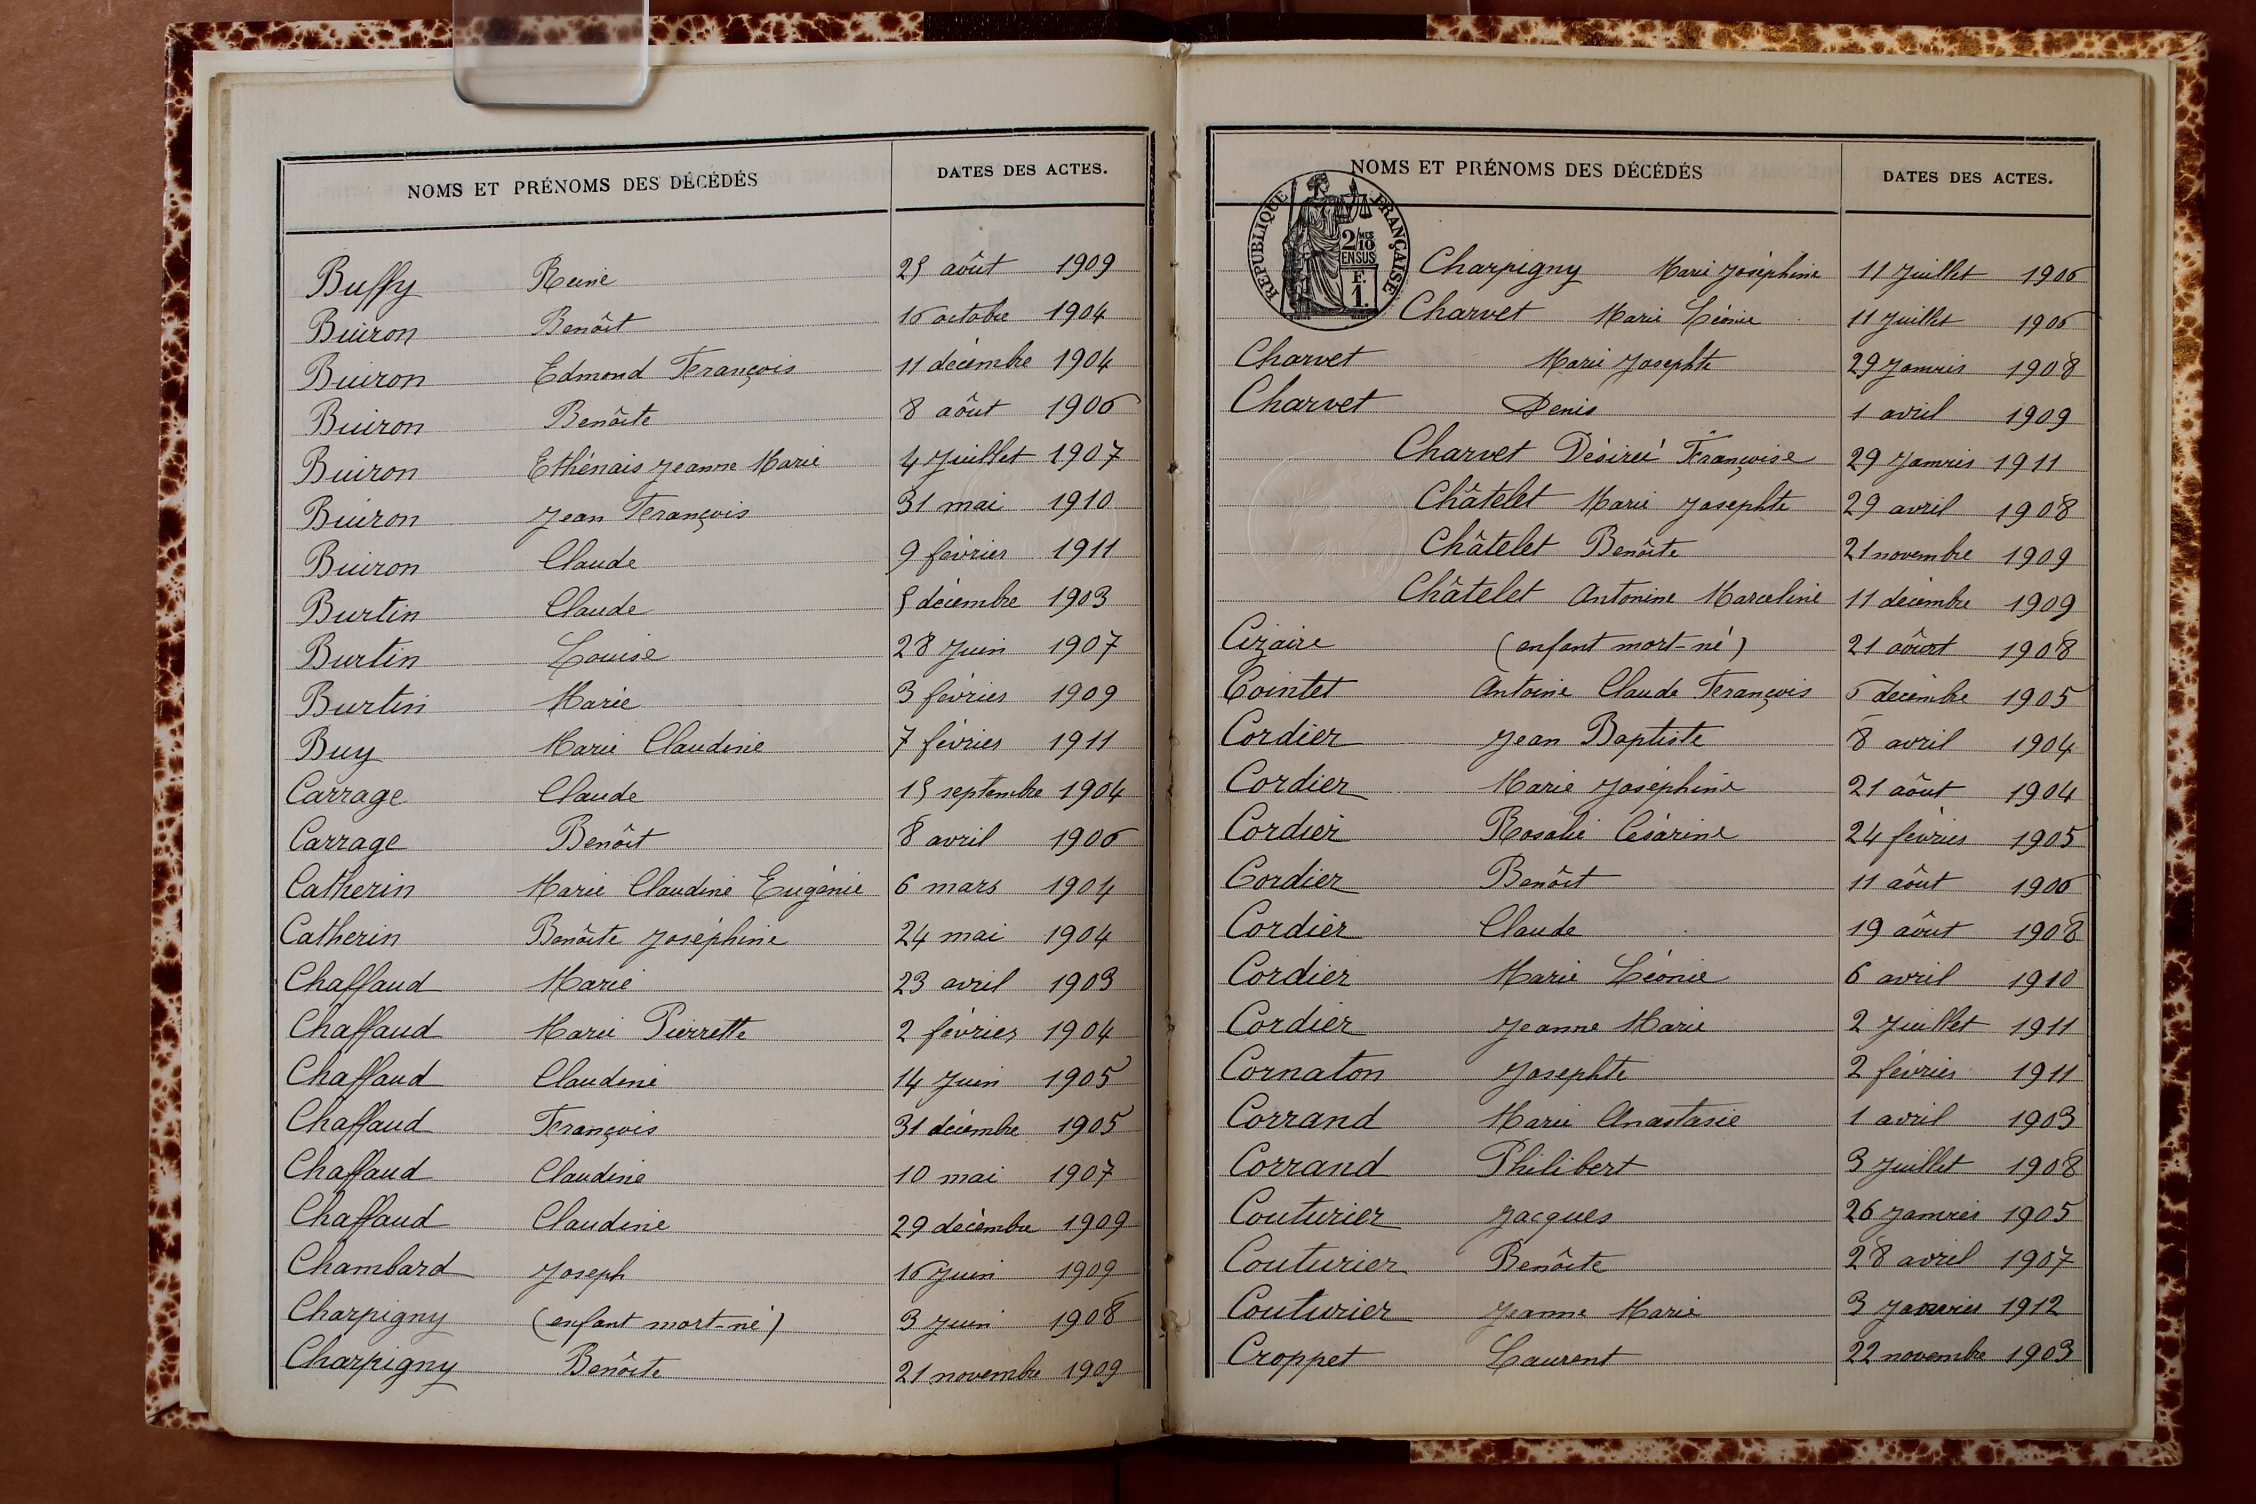 NOMS ET PRÉNOMS DES DÉCÉDÉS DATES DES ACTES.
Buffy Reine 25 août 1909
Buiron Benôit 16 octobre 1904
Buiron Edmond François 11 décembre 1904
Buiron Benôite 8 aôut 1906
Buiron Ethénais Jeanne Marie 4 Juillet 1907
Buiron Jean François 31 mai 1910
Buiron Claude 9 février 1911
Burtin Claude 5 décembre 1903
Burtin Louise 28 Juin 1907
Burtin Marie 3 février 1909
Buy Marie Claudine 7 février 1911
Carrage Claude 15 septembre 1904
Carrage Benôit 8 avril 1906
Catherin Marie Claudine Eugénie 6 mars 1904
Catherin Benôite Joséphine 24 mai 1904
Chaffaud Marie 23 avril 1903
Chaffaud Marie Pierrette 2 février 1904
Chaffaud Claudine 14 Juin 1905
Chaffaud François 31 décembre 1905
Chaffaud Claudine 10 mai 1907
Chaffaud Claudine 29 décembre 1909
Chambard Joseph 16 Juin 1909
Charpigny (enfant mort-né) 3 Juin 1908
Charpigny Benôite 21 novembre 1909
NOMS ET PRÉNOMS DES DÉCÉDÉS DATES DES ACTES.
RÉPUBLIQUE FRANÇAISE
2/10 MES
EN SUS
F.
1.
Charpigny Marie Joséphine 11 Juillet 1906
Charvet Marie Léonie 11 Juillet 1906
Charvet Marie Josephte 29 Janvier 1908
Charvet Denis 1 avril 1909
Charvet Désirée Françoise 29 Janvier 1911
Châtelet Marie Josephte 29 avril 1908
Châtelet Benôite 21 novembre 1909
Châtelet Antonine Marceline 11 décembre 1909
Cizaire (enfant mort-né) 21 aôut 1908
Cointet Antoine Claude François 6 décembre 1905
Cordier Jean Baptiste 8 avril 1904
Cordier Marie Joséphine 21 aôut 1904
Cordier Rosalie Césarine 24 février 1905
Cordier Benôit 11 aôut 1906
Cordier Claude 19 aôut 1908
Cordier Marie Léonie 6 avril 1910
Cordier Jeanne Marie 2 Juillet 1911
Cornaton Josephte 2 février 1911
Corrand Marie Anastasie 1 avril 1903
Corrand Philibert 3 Juillet 1908
Couturier Jacques 26 Janvier 1905
Couturier Benôite 28 avril 1907
Couturier Jeanne Marie 3 Janvier 1912
Croppet Laurent 22 novembre 1903